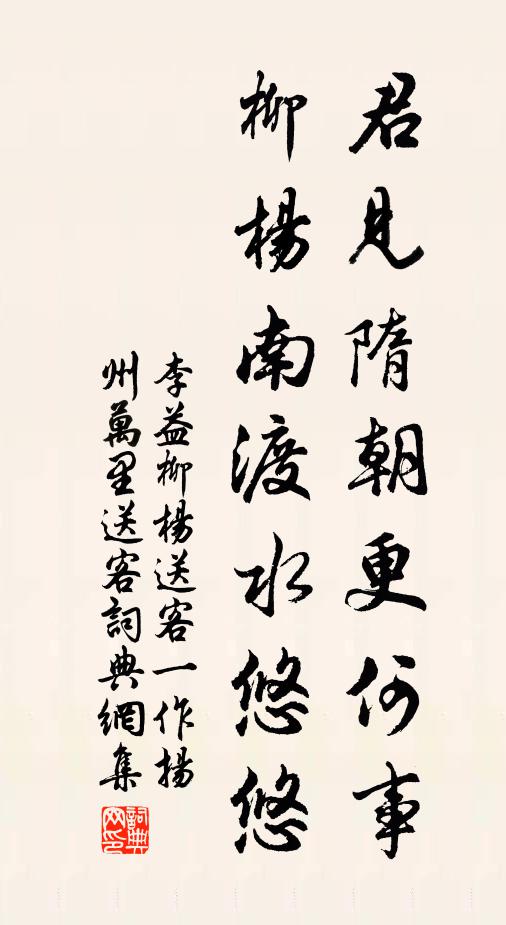 君見隋朝更何事
柳楊南渡水悠悠
李益柳楊送客一作揚
州萬里送客詞典網集
詞典
网印